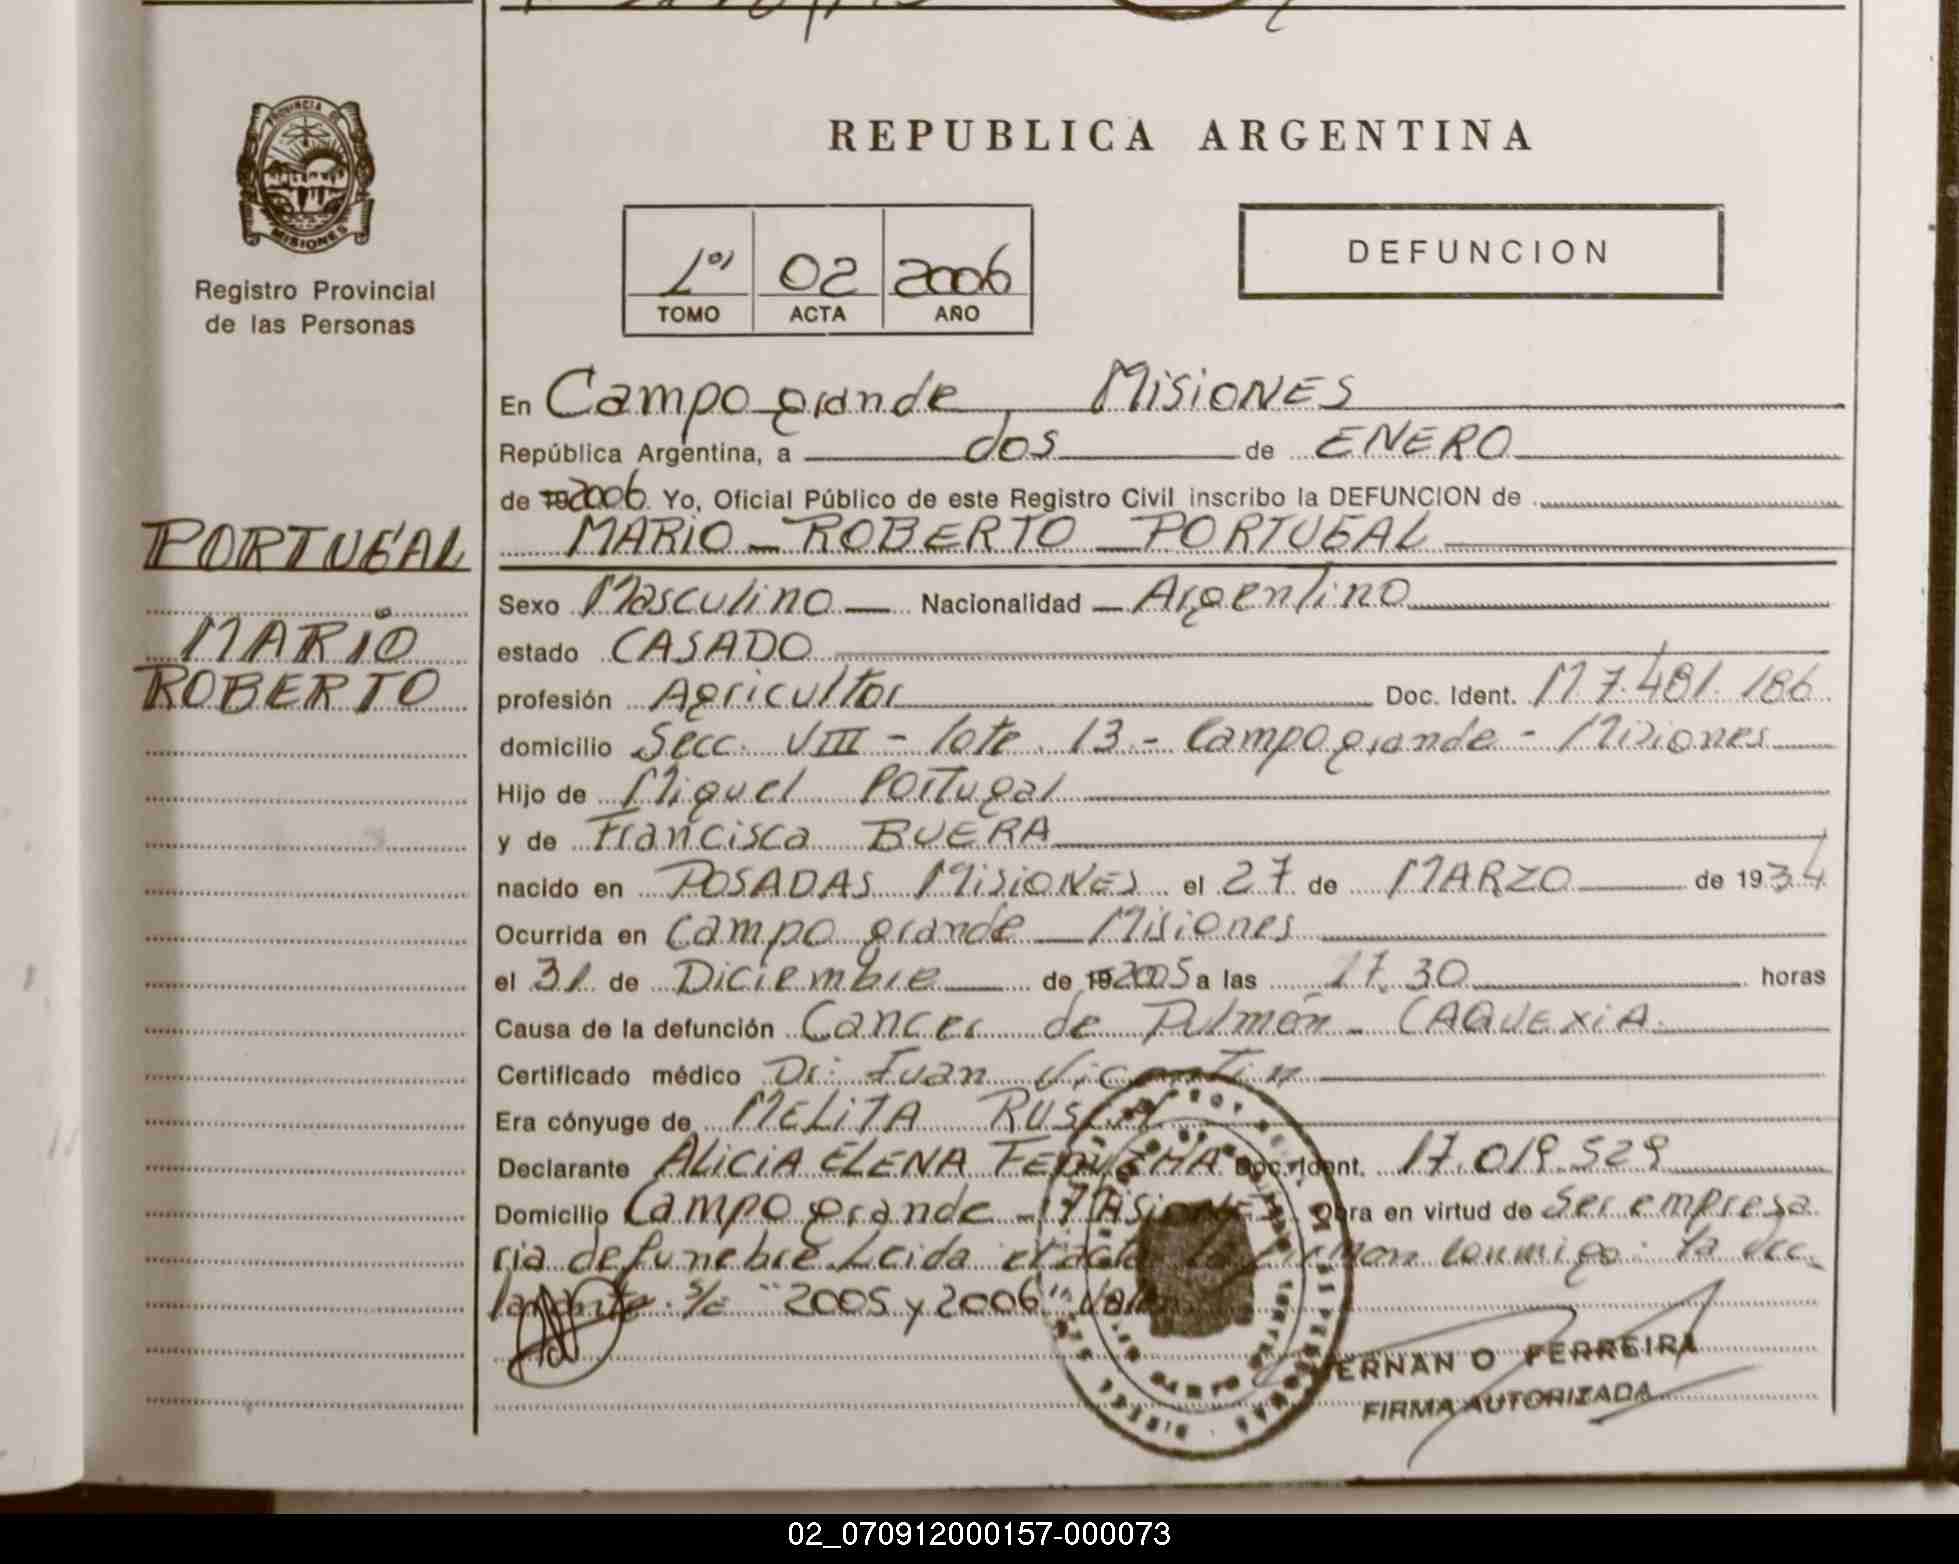 PROVINCIA DE
MISIONES
Registro Provincial
de las Personas
REPUBLICA ARGENTINA
1º 02 2006
TOMO ACTA AÑO
DEFUNCION
En Campo grande, MISIONES
República Argentina, a dos de ENERO
de 19 2006 Yo, Oficial Público de este Registro Civil inscribo la DEFUNCION de
PORTUGAL
MARIO ROBERTO PORTUGAL
MARIO
ROBERTO
Sexo Masculino Nacionalidad Argentino
estado CASADO
profesión Agricultor Doc. Ident. M 7.481.186
domicilio Secc. VIII - lote 13 - Campo grande - Misiones
Hijo de Miguel Portugal
y de Francisca BUERA
nacido en POSADAS MISIONES el 27 de MARZO de 1934
Ocurrida en Campo grande Misiones
el 31 de Diciembre de 19 2005 a las 17.30 horas
Causa de la defunción Cancer de Pulmón - CAQUEXIA
Certificado médico Dr: Juan Vicentin
Era cónyuge de MELITA
Declarante ALICIA ELENA Doc. Ident. 17.019.529
Domicilio Campo grande - Misiones Obra en virtud de Ser empresa
ria defunebre. Leida el acta la firman conmigo: la dec
larante. S/c "2005 y 2006" Valen
HERNAN O FERREIRA
FIRMA AUTORIZADA
02_070912000157-000073